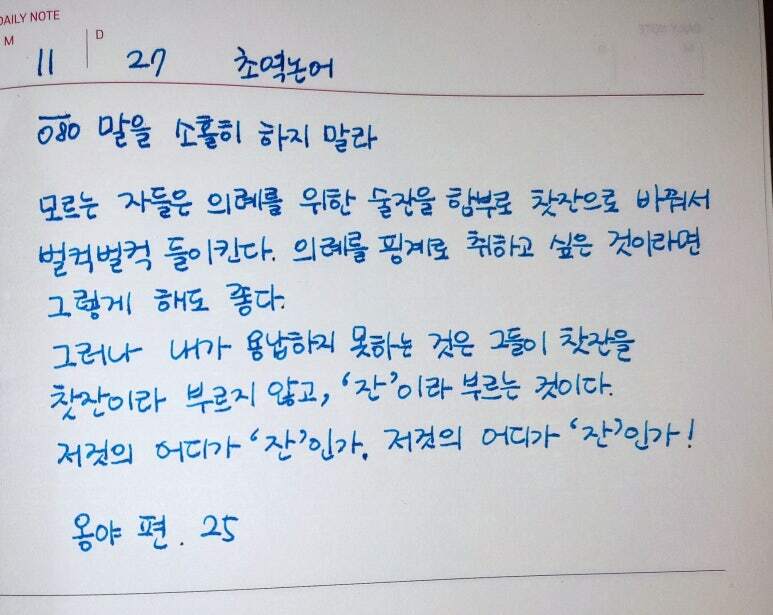 DAILY NOTE
M 11 D 27 초역논어
080 말을 소홀히 하지 말라
모르는 자들은 의례를 위한 술잔을 함부로 찻잔으로 바꿔서
벌컥벌컥 들이킨다. 의례를 핑계로 취하고 싶은 것이라면
그렇게 해도 좋다.
그러나 내가 용납하지 못하는 것은 그들이 찻잔을
찻잔이라 부르지 않고, '잔'이라 부르는 것이다.
저것의 어디가 '잔'인가. 저것의 어디가 '잔'인가!
옹야 편. 25